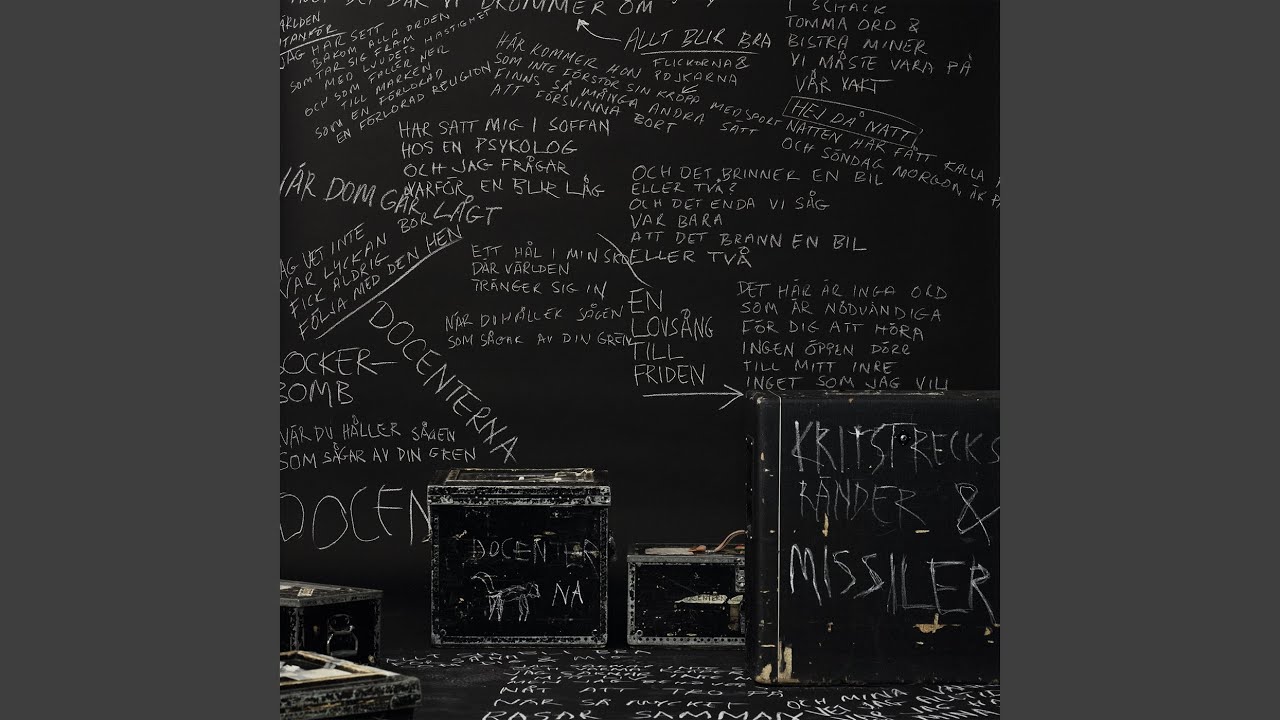 DET DÄR VI DRÖMMER OM
VÄRLDEN
UTANFÖR
JAG HAR SETT
BAKOM ALLA ORDEN
SOM TAR SIG FRAM
MED LJUDETS HASTIGHET
OCH SOM FALLER NER
TILL MARKEN
SOM EN FÖRLORAD
EN FÖRLORAD RELIGION
ALLT BLIR BRA
FLICKORNA &
POJKARNA
HÄR KOMMER HON
SOM INTE FÖRSTÖR SIN KROPP MED SPORT
FINNS SÅ MÅNGA ANDRA SÄTT
ATT FÖRSVINNA BORT
I SCHACK
TOMMA ORD &
BISTRA MINER
VI MÅSTE VARA PÅ
VÅR VAKT
HEJ DÅ NATT!
NATTEN HAR FÅTT KALLA
OCH SÖNDAG MORGON ÄR PÅ
HAR SATT MIG I SOFFAN
HOS EN PSYKOLOG
OCH JAG FRÅGAR
VARFÖR EN BLIR LÅG
NÄR DOM GÅR LÅGT
JAG VET INTE
VAR LYCKAN BOR
FICK ALDRIG
FÖLJA MED DEN HEM
OCH DET BRINNER EN BIL
ELLER TVÅ?
OCH DET ENDA VI SÅG
VAR BARA
ATT DET BRANN EN BIL
ELLER TVÅ
ETT HÅL I MIN SKO
DÄR VÄRLDEN
TRÄNGER SIG IN
NÄR DU HÅLLER SÅGEN
SOM SÅGAR AV DIN GREN
EN
LOVSÅNG
TILL
FRIDEN
DET HÄR ÄR INGA ORD
SOM ÄR NÖDVÄNDIGA
FÖR DIG ATT HÖRA
INGEN ÖPPEN DÖRR
TILL MITT INRE
INGET SOM JAG VILL
DOCENTERNA
SOCKER-
BOMB
NÄR DU HÅLLER SÅGEN
SOM SÅGAR AV DIN GREN
DOCEN
DOCENTER
NA
KRITSTRECKS
RÄNDER &
MISSILER
NÅT ATT TRO PÅ
NÄR SÅ MYCKET
RASAR SAMMAN
OCH MINA
VET JAG